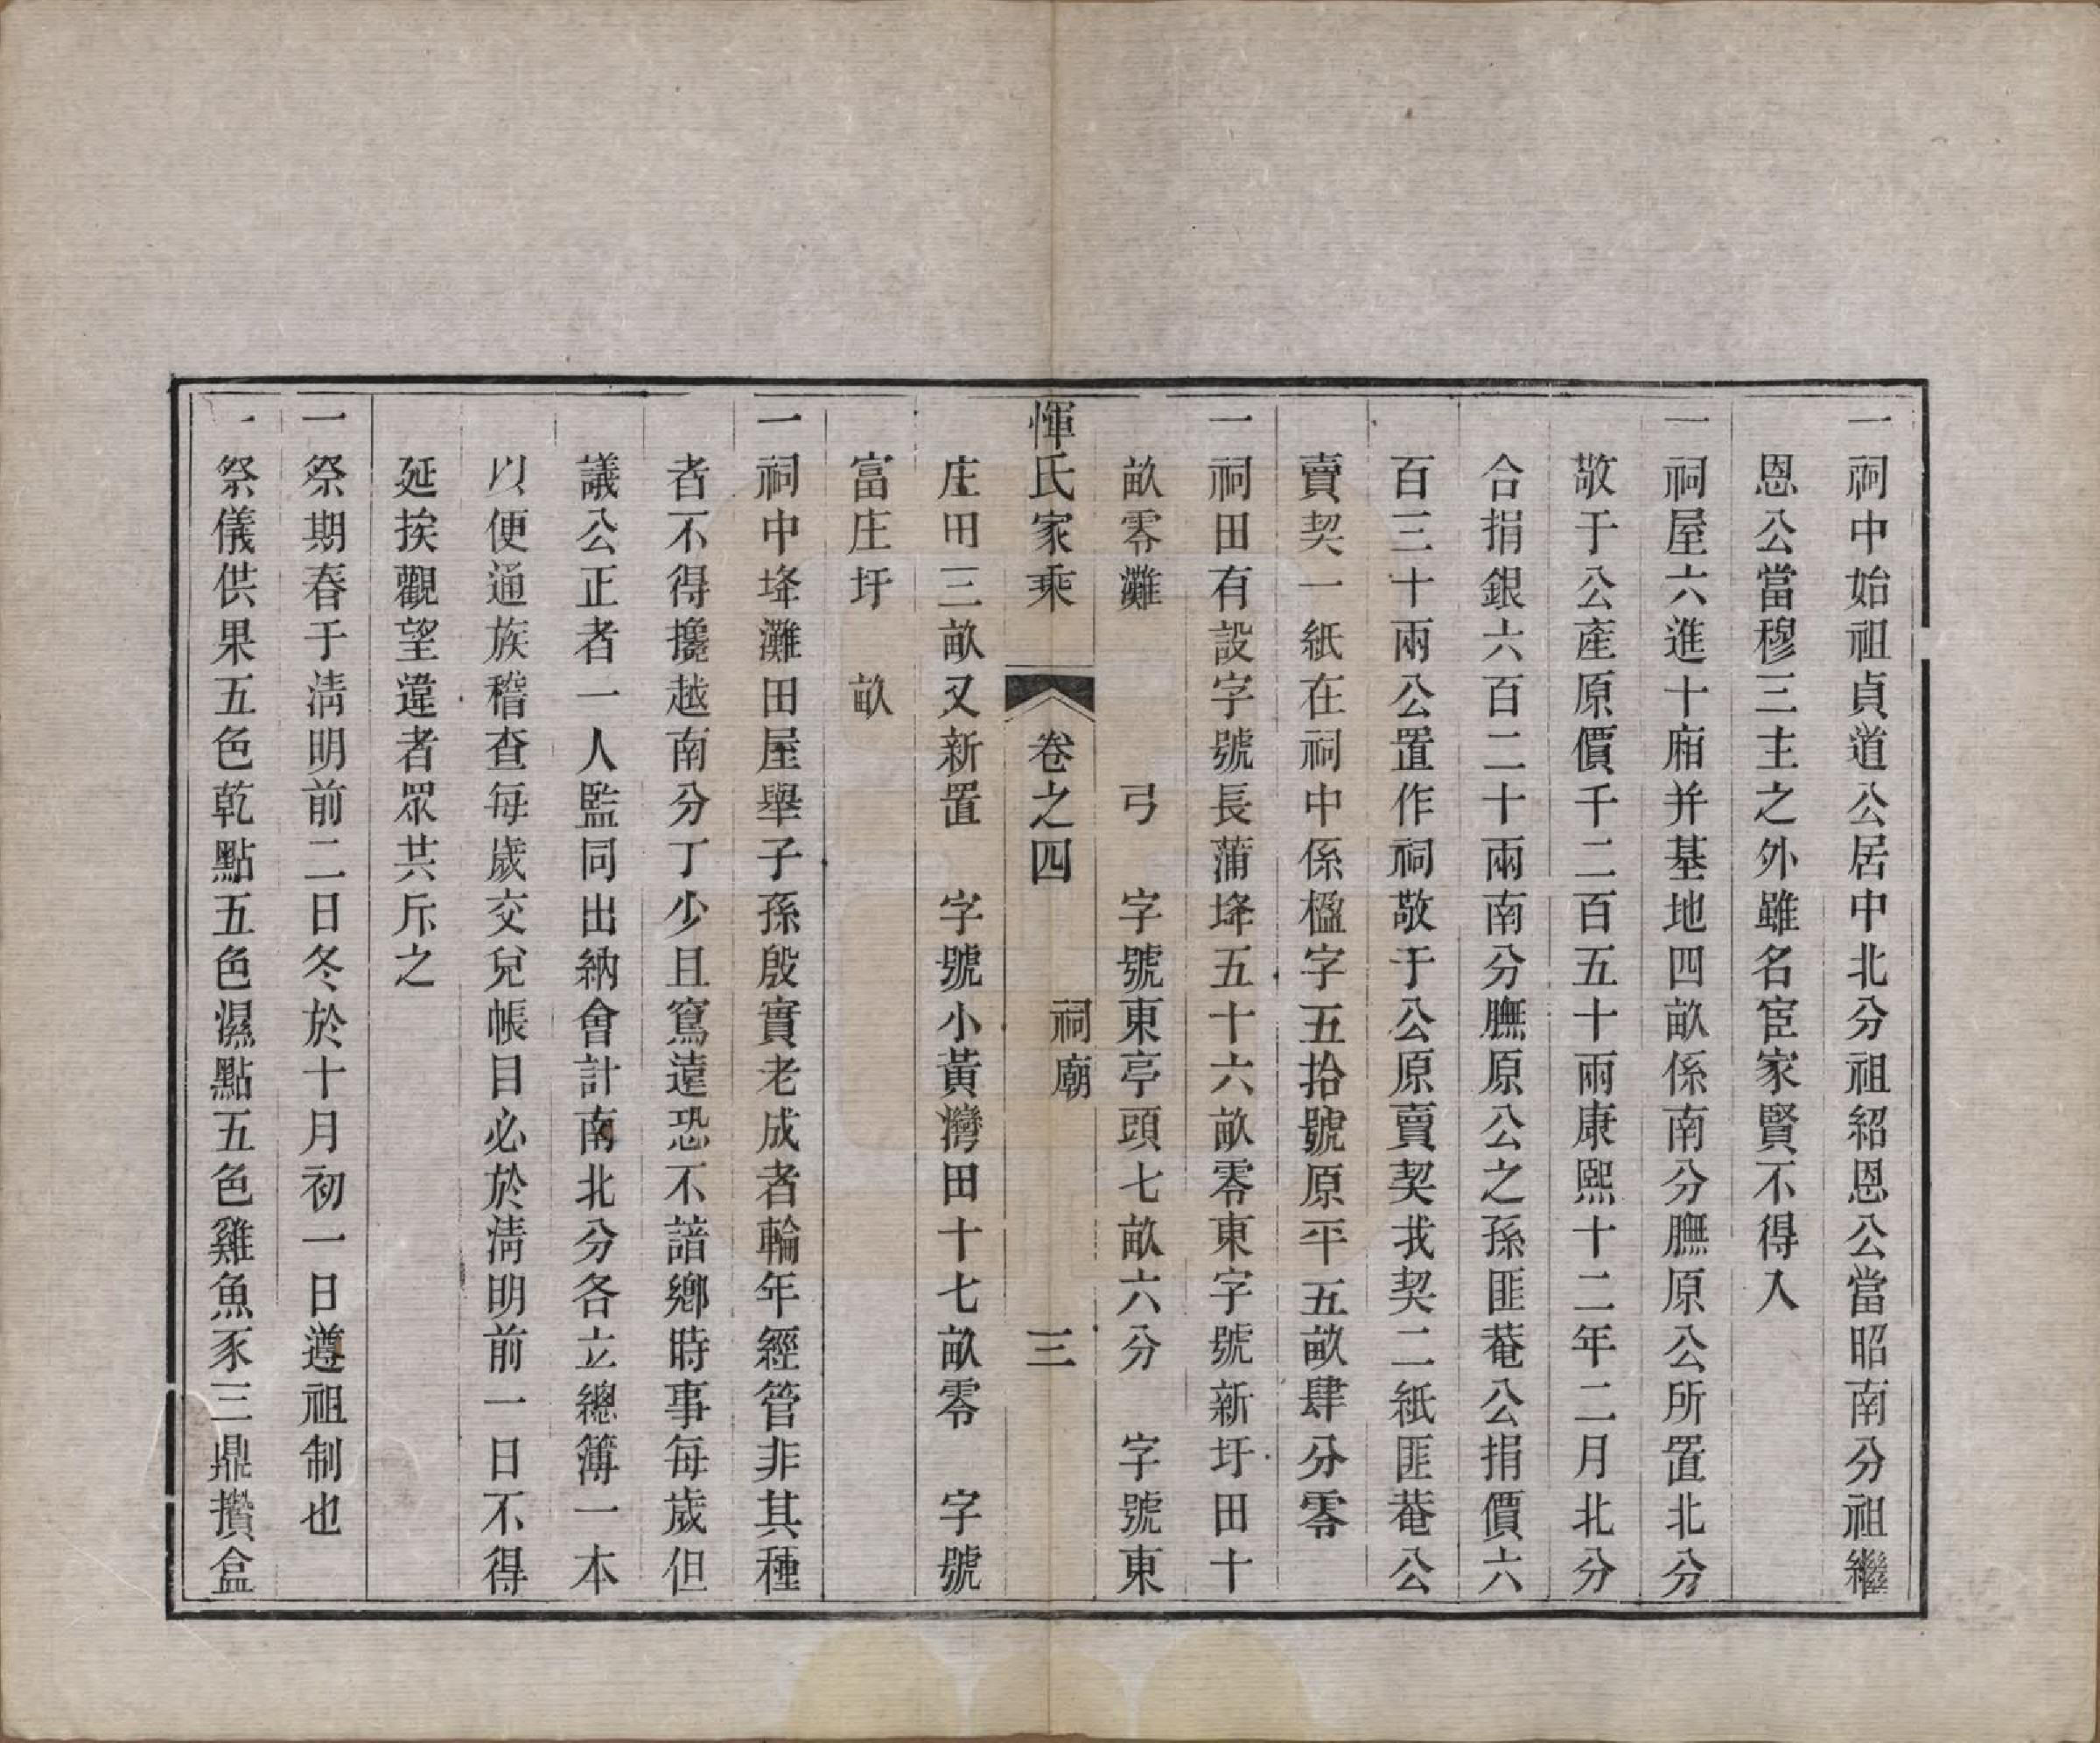 一祠中始祖貞道公居中北分祖紹恩公當昭南分祖繼
恩公當穆三主之外雖名宦家賢不得入
一祠屋六進十廂并基地四畝係南分膴原公所置北分
敬于公產原價千二百五十兩康熙十二年二月北分
合捐銀六百二十兩南分膴原公之孫匪菴公捐價六
百三十兩公置作祠敬于公原賣契我契二紙匪菴公
賣契一紙在祠中係楹字五拾號原平五畝肆分零
一祠田有設字號長蒲埄五十六畝零東字號新圩田十
畝零灘 弓 字號東亭頭七畝六分 字號東
惲氏家乘 卷之四 祠廟 三
庄田三畝又新置 字號小黃灣田十七畝零 字號
富庄圩 畝
一祠中埄灘田屋舉子孫殷實老成者輪年經管非其種
者不得攙越南分丁少且窵遠恐不諳鄉時事每歲但
議公正者一人監同出納會計南北分各立總簿一本
以便通族稽查每歲交兌帳目必於淸明前一日不得
延挨觀望違者眾共斥之
一祭期春于淸明前二日冬於十月初一日遵祖制也
一祭儀供果五色乾點五色濕點五色雞魚豕三鼎攢盒